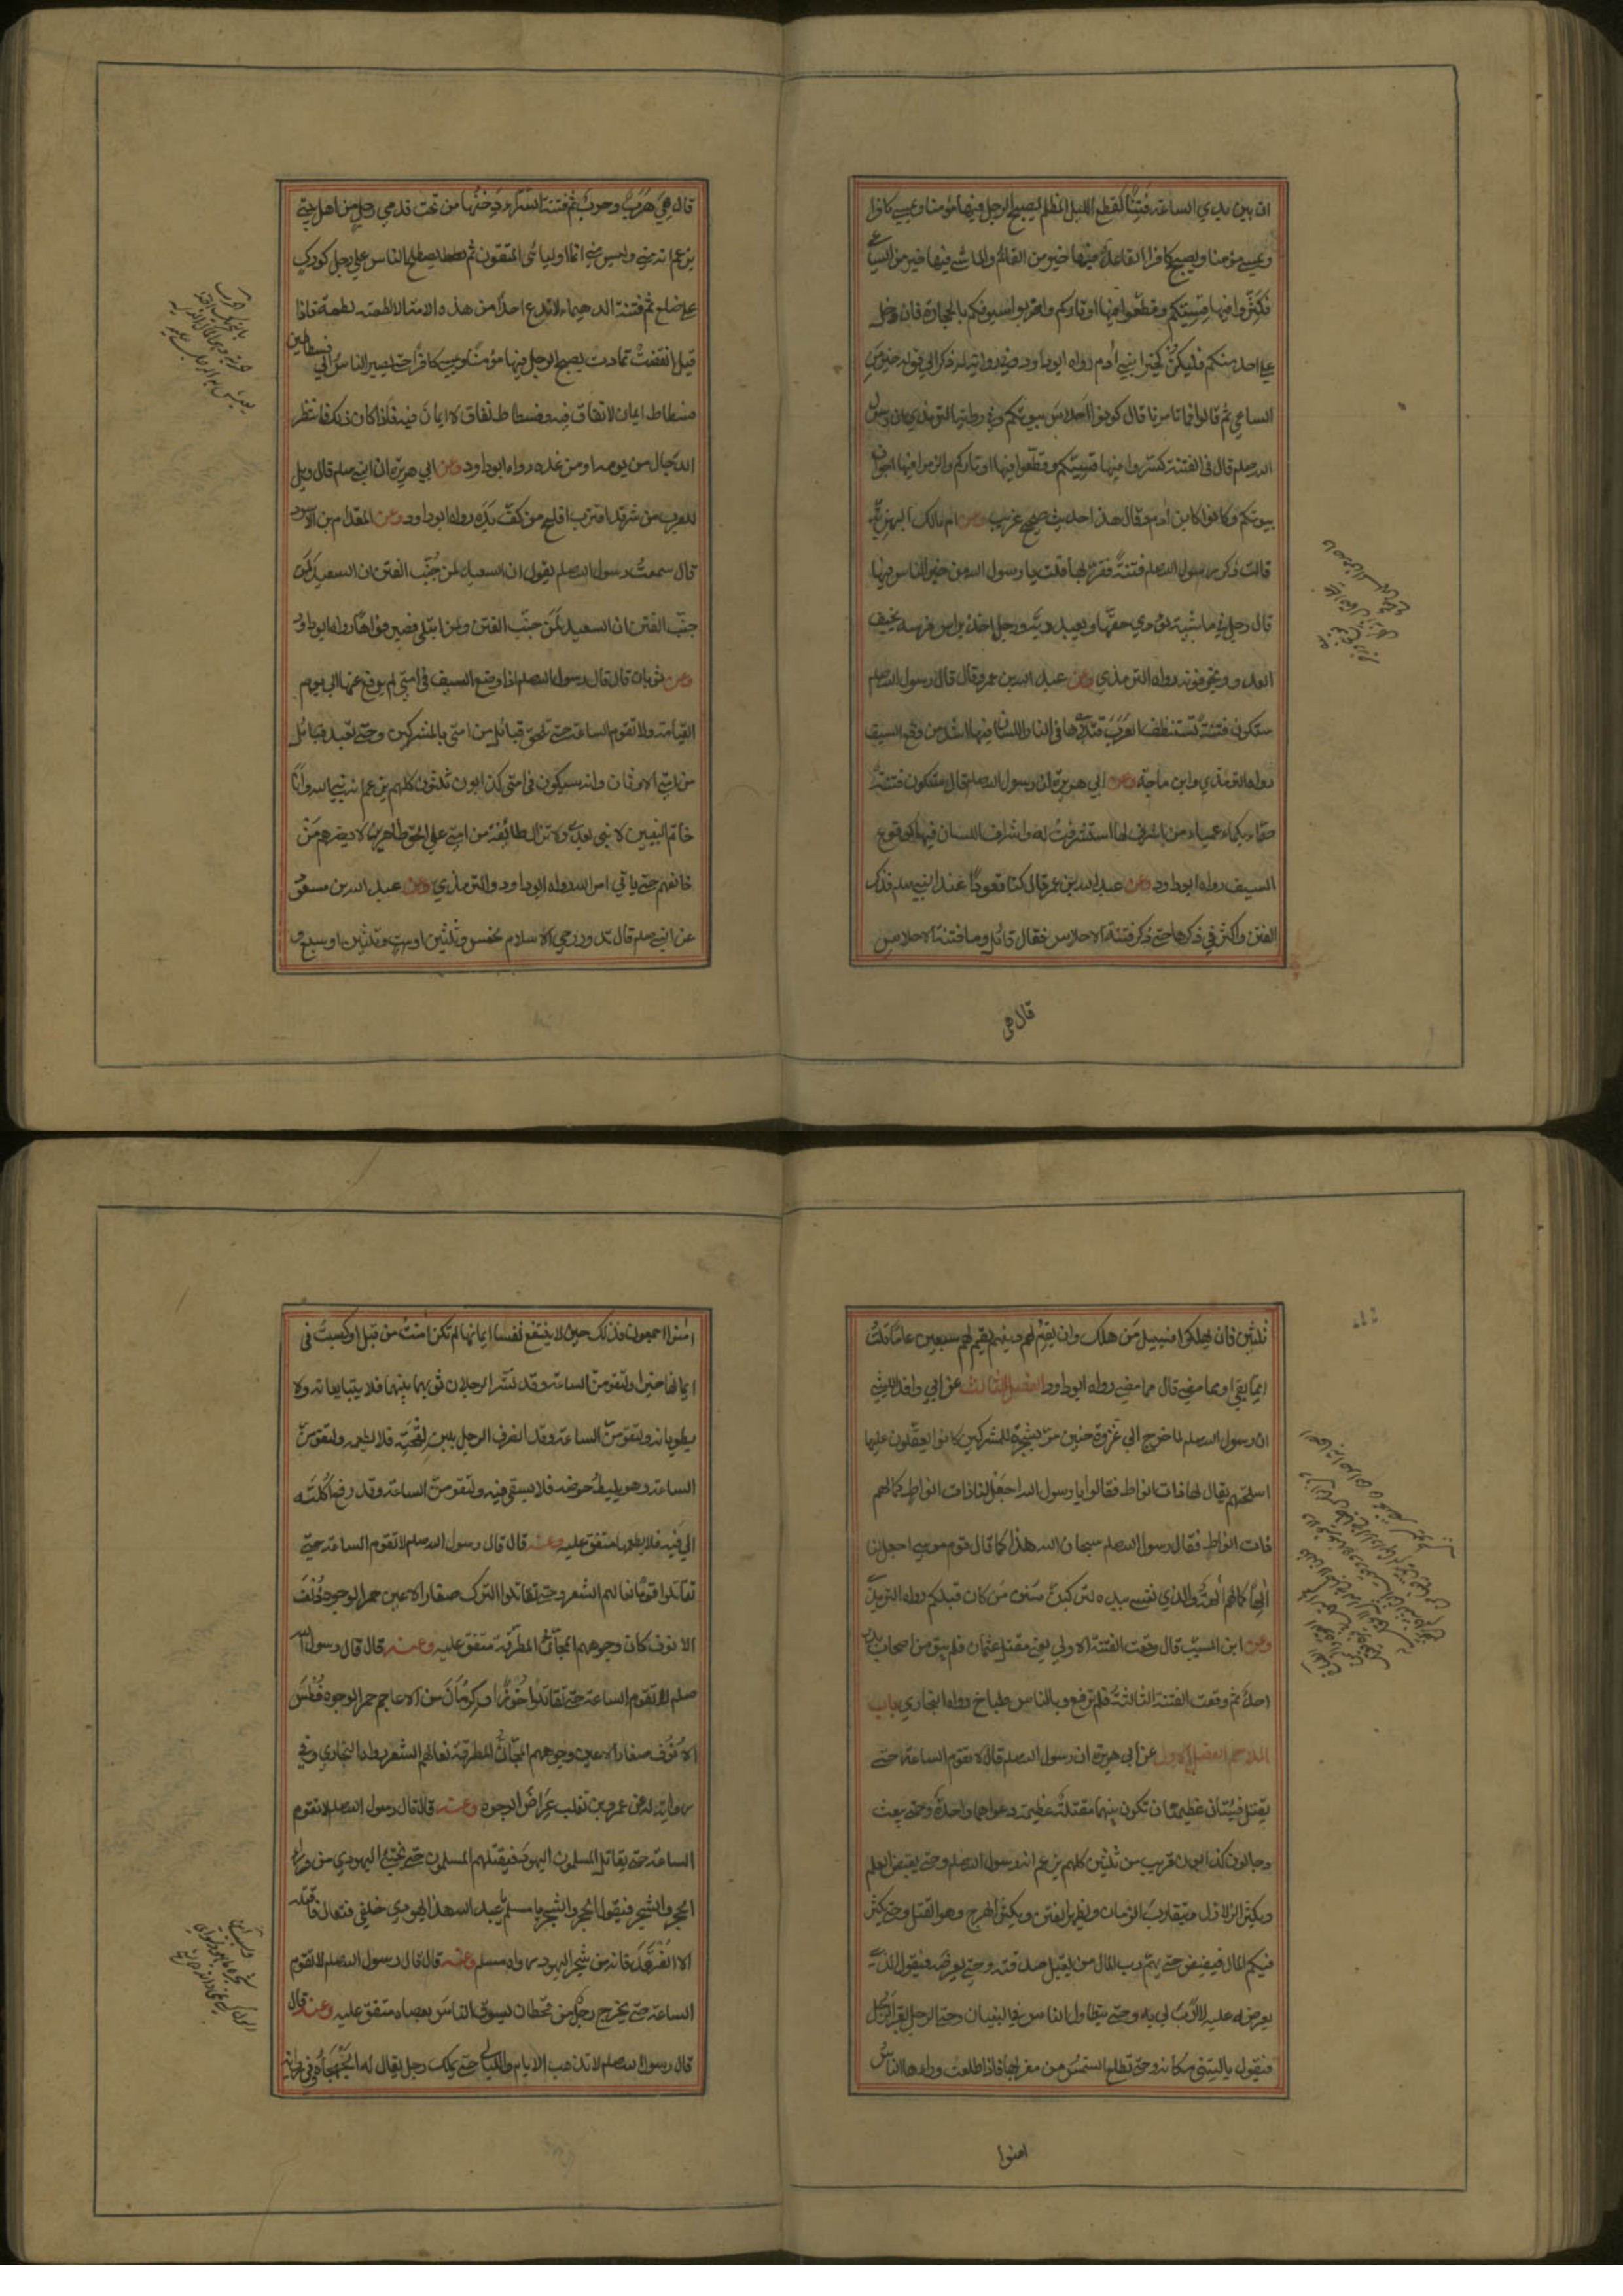 ان بين يدي الساعة فتنا كقطع الليل المظلم يصبح الرجل فيها مؤمنا ويمسي كافرا
ويمسي مؤمنا ويصبح كافرا القاعد فيها خير من القائم والماشي فيها خير من الساعي
فكسروا فيها قسيكم وقطعوا فيها اوتاركم واضربوا سيوفكم بالحجارة فان دخل
على احد منكم فليكن كخير ابني آدم رواه ابوداود وفي رواية له ذكر الى قوله خير من
الساعي ثم قالوا فما تامرنا قال كونوا احلاس بيوتكم وفي رواية الترمذي ان رسول
الله صلعم قال في الفتنة كسروا فيها قسيكم وقطعوا فيها اوتاركم والزموا فيها اجواف
بيوتكم وكونوا كابن آدم وقال هذا حديث صحيح غريب وعن ام مالك البهزية
قالت ذكر رسول الله صلعم فتنة فقربها قلت يا رسول الله من خير الناس فيها
قال رجل في ماشيته يؤدي حقها ويعبد ربه ورجل اخذ براس فرسه يخيف
العدو ويخوفونه رواه الترمذي وعن عبد الله بن عمرو قال قال رسول الله صلعم
ستكون فتنة تستنظف العرب قتلاها في النار اللسان فيها اشد من وقع السيف
رواه الترمذي وابن ماجة وعن ابي هريرة ان رسول الله صلعم قال ستكون فتنة
صماء بكماء عمياء من اشرف لها استشرفت له واشراف اللسان فيها كوقوع
السيف رواه ابوداود وعن عبد الله بن عمر قال كنا قعودا عند النبي صلعم فذكر
الفتن واكثر في ذكرها حتى ذكر فتنة الاحلاس فقال قائل وما فتنة الاحلاس
قال هي
قال هي هرب وحرب ثم فتنة السراء دخنها من تحت قدمي رجل من اهل بيتي
يزعم انه مني وليس مني انما اوليائي المتقون ثم يصطلح الناس على رجل كورك
على ضلع ثم فتنة الدهيماء لا تدع احدا من هذه الامة الا لطمته لطمة فاذا
قيل انقضت تمادت يصبح الرجل فيها مؤمنا ويمسي كافرا حتى يصير الناس الى فسطاطين
فسطاط ايمان لا نفاق فيه وفسطاط نفاق لا ايمان فيه فاذا كان ذلك فانتظر
الدجال من يومه او من غده رواه ابوداود وعن ابي هريرة ان النبي صلعم قال ويل
للعرب من شر قد اقترب افلح من كف يده رواه ابوداود وعن المقدام بن الاسود
قال سمعت رسول الله صلعم يقول ان السعيد لمن جنب الفتن ان السعيد لمن
جنب الفتن ان السعيد لمن جنب الفتن ولمن ابتلي فصبر فواها رواه ابوداود
وعن ثوبان قال قال رسول الله صلعم اذا وضع السيف في امتي لم يرفع عنها الى يوم
القيامة ولا تقوم الساعة حتى تلحق قبائل من امتي بالمشركين وحتى تعبد قبائل
من امتي الاوثان وانه سيكون في امتي كذابون ثلثون كلهم يزعم انه نبي الله وانا
خاتم النبيين لا نبي بعدي ولا تزال طائفة من امتي على الحق ظاهرين لا يضرهم من
خالفهم حتى ياتي امر الله رواه ابوداود والترمذي وعن عبد الله بن مسعود
عن النبي صلعم قال تدور رحى الاسلام لخمس وثلثين او ست وثلثين او سبع و
ثلثين فان يهلكوا فسبيل من هلك وان يقم لهم دينهم يقم لهم سبعين عاما قلت
امما بقي او مما مضى قال مما مضى رواه ابوداود الفصل الثالث عن ابي واقد الليثي
ان رسول الله صلعم لما خرج الى غزوة حنين مر بشجرة للمشركين كانوا يعلقون عليها
اسلحتهم يقال لها ذات انواط فقالوا يا رسول الله اجعل لنا ذات انواط كما لهم
ذات انواط فقال رسول الله صلعم سبحان الله هذا كما قال قوم موسى اجعل لنا
الها كما لهم آلهة والذي نفسي بيده لتركبن سنن من كان قبلكم رواه الترمذي
وعن ابن المسيب قال وقعت الفتنة الاولى يعني مقتل عثمان فلم يبق من اصحاب بدر
احد ثم وقعت الفتنة الثالثة فلم ترفع وبالناس طباخ رواه البخاري باب
الملاحم الفصل الاول عن ابي هريرة ان رسول الله صلعم قال لا تقوم الساعة حتى
يقتتل فئتان عظيمتان تكون بينهما مقتلة عظيمة دعواهما واحدة وحتى يبعث
دجالون كذابون قريب من ثلثين كلهم يزعم انه رسول الله صلعم وحتى يقبض العلم
ويكثر الزلازل ويتقارب الزمان ويظهر الفتن ويكثر الهرج وهو القتل وحتى يكثر
فيكم المال فيفيض حتى يهم رب المال من يقبل صدقته وحتى يعرضه فيقول الذي
يعرضه عليه لا ارب لي به وحتى يتطاول الناس في البنيان وحتى يمر الرجل بقبر الرجل
فيقول يا ليتني مكانه وحتى تطلع الشمس من مغربها فاذا طلعت ورآها الناس
امنوا
امنوا اجمعون فذلك حين لا ينفع نفسا ايمانها لم تكن آمنت من قبل او كسبت في
ايمانها خيرا ولتقومن الساعة وقد نشر الرجلان ثوبهما بينهما فلا يتبايعانه ولا
يطويانه ولتقومن الساعة وقد انصرف الرجل بلبن لقحته فلا يطعمه ولتقومن
الساعة وهو يليط حوضه فلا يسقي فيه ولتقومن الساعة وقد رفع اكلته
الى فيه فلا يطعمها متفق عليه وعنه قال قال رسول الله صلعم لا تقوم الساعة حتى
تقاتلوا قوما نعالهم الشعر وحتى تقاتلوا الترك صغار الاعين حمر الوجوه ذلف
الانوف كان وجوههم المجان المطرقة متفق عليه وعنه قال قال رسول الله
صلعم لا تقوم الساعة حتى تقاتلوا خوزا وكرمان من الاعاجم حمر الوجوه فطس
الانوف صغار الاعين وجوههم المجان المطرقة نعالهم الشعر رواه البخاري وفي
رواية له عن عمرو بن تغلب عراض الوجوه وعنه قال قال رسول الله صلعم لا تقوم
الساعة حتى يقاتل المسلمون اليهود فيقتلهم المسلمون حتى يختبئ اليهودي من وراء
الحجر والشجر فيقول الحجر والشجر يا مسلم يا عبد الله هذا يهودي خلفي فتعال فاقتله
الا الغرقد فانه من شجر اليهود رواه مسلم وعنه قال قال رسول الله صلعم لا تقوم
الساعة حتى يخرج رجل من قحطان يسوق الناس بعصاه متفق عليه وعنه قال
قال رسول الله صلعم لا تذهب الايام والليالي حتى يملك رجل يقال له الجهجاه وفي رواية